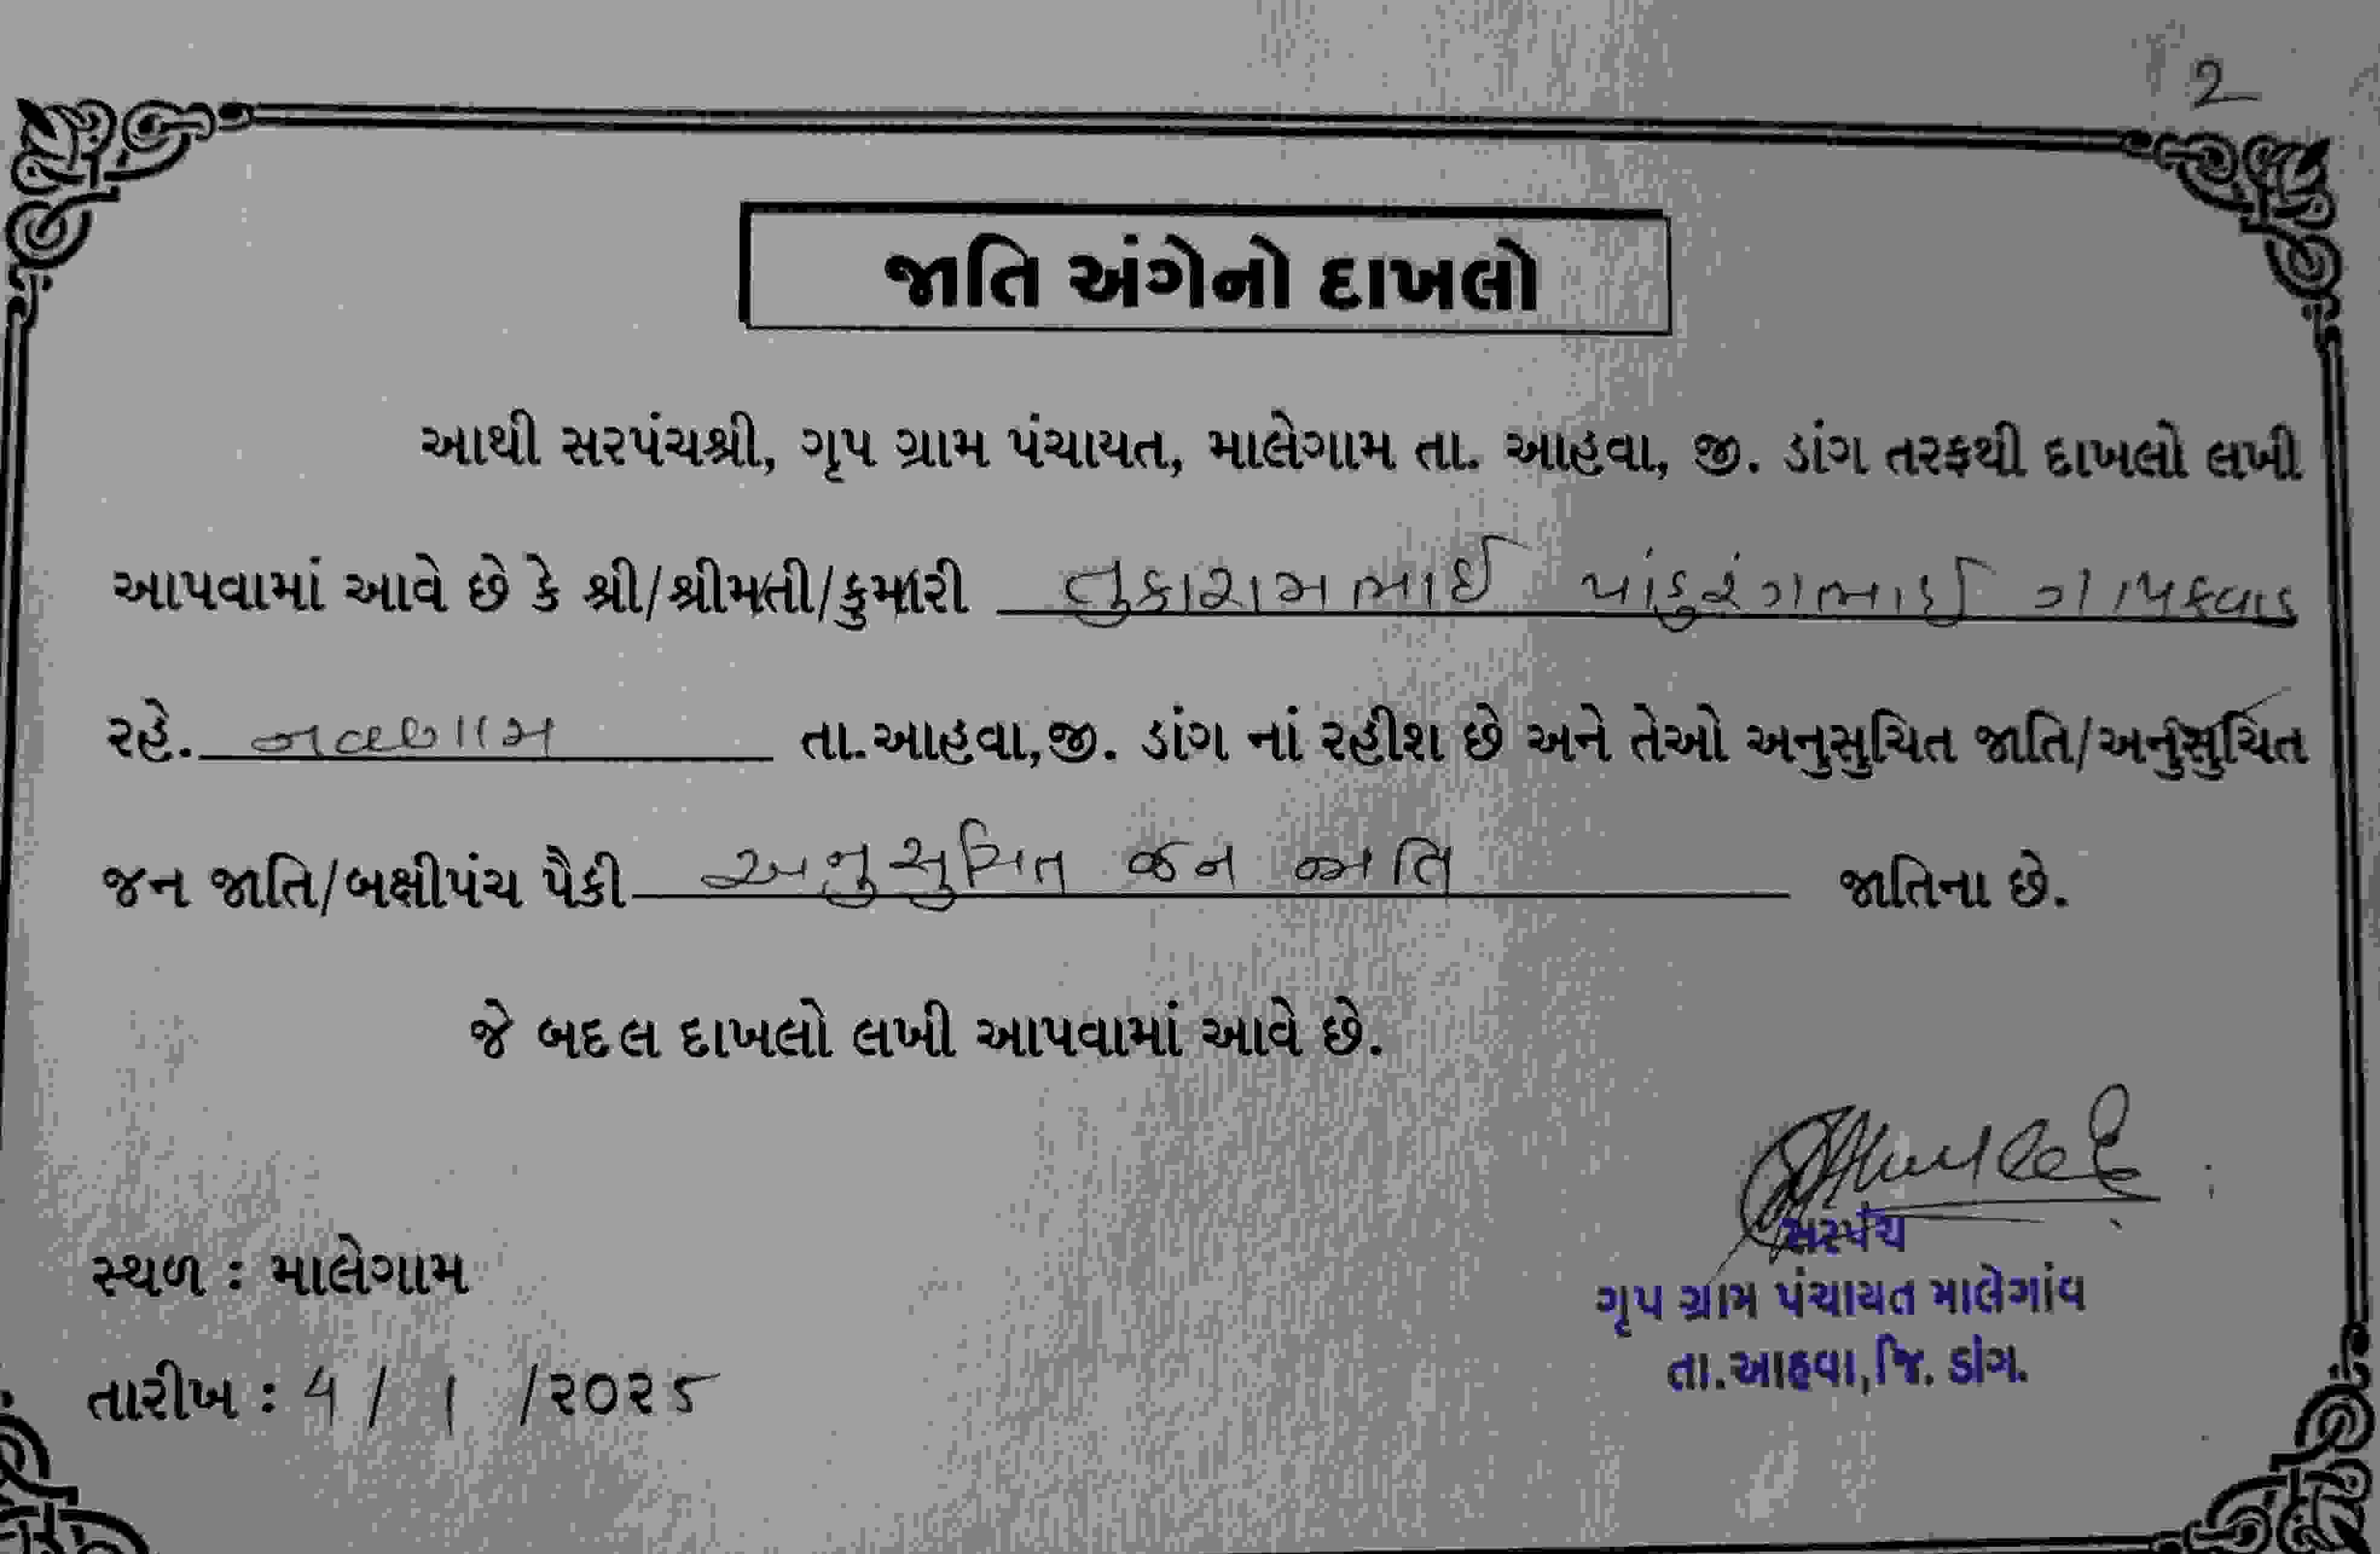 2
જાતિ અંગેનો દાખલો
આથી સરપંચશ્રી, ગૃપ ગ્રામ પંચાયત, માલેગામ તા. આહવા, જી. ડાંગ તરફથી દાખલો લખી
આપવામાં આવે છે કે શ્રી/શ્રીમતી/કુમારી તુકારામભાઈ પાંડુરંગભાઈ ગાયકવાડ
રહે. તા.આહવા,જી. ડાંગ નાં રહીશ છે અને તેઓ અનુસુચિત જાતિ/અનુસુચિત
જન જાતિ/બક્ષીપંચ પૈકી અનુસુચિત જન જાતિ જાતિના છે.
જે બદલ દાખલો લખી આપવામાં આવે છે.
સરપંચ
સ્થળ : માલેગામ
ગૃપ ગ્રામ પંચાયત માલેગાંવ
તા.આહવા,જિ. ડાંગ.
તારીખ : ૫/ ૧ /૨૦૨૬